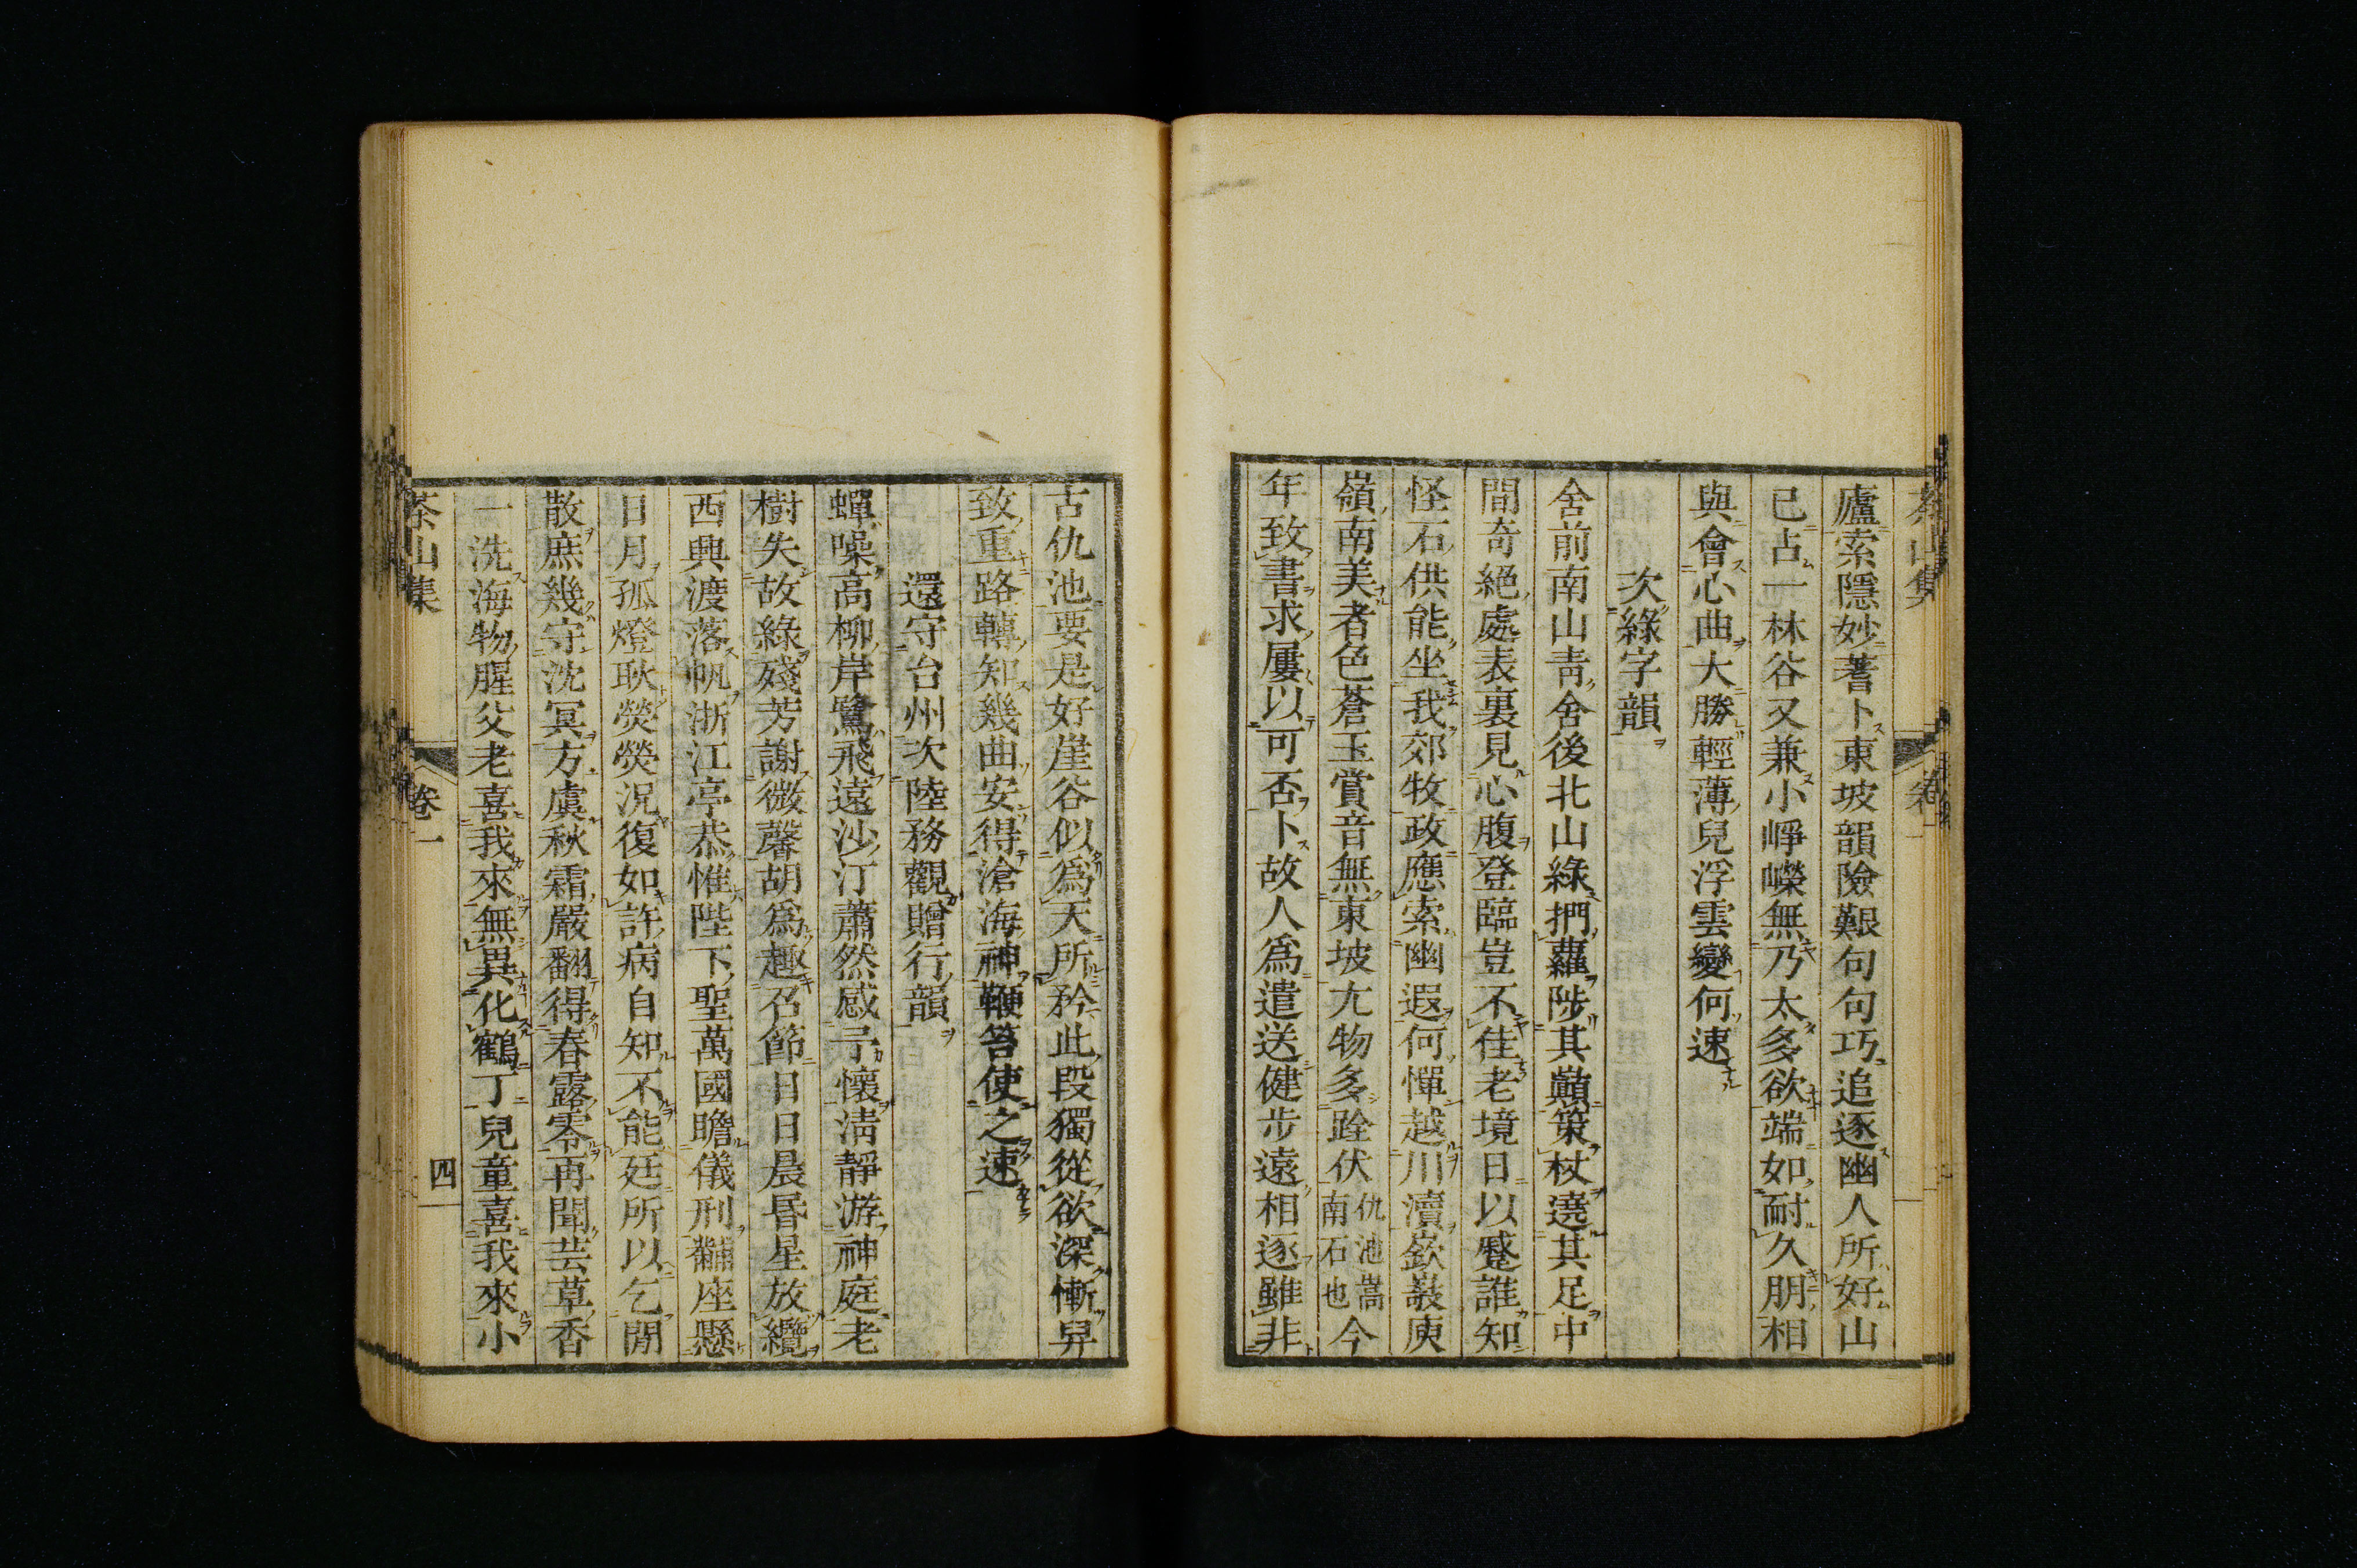 茶山集 卷一
廬索隱妙蓍卜東坡韻險艱句句巧追逐幽人所好山
已占一林谷又兼小崢嶸無乃太多欲端如耐久朋相
與會心曲大勝輕薄兒浮雲變何速
次綠字韻
舍前南山青舍後北山綠捫蘿陟其巔策杖遶其足中
間奇絕處表裏見心腹登臨豈不佳老境日以蹙誰知
怪石供能坐我郊牧政應索幽遐何憚越川瀆嶔巖庾
嶺南美者色蒼玉賞音無東坡尤物多跧伏仇池嵩南石也今
年致書求屢以可否卜故人為遣送健步遠相逐雖非
古仇池要是好崖谷似爲天所矜此段獨從欲深慚舁
致重路轉知幾曲安得滄海神鞭笞使之速
還守台州次陸務觀贈行韻
蟬噪高柳岸鷺飛遠沙汀蕭然感予懷清靜游神庭老
樹失故綠殘芳謝微馨胡爲趣召節日日晨昏星放纜
西興渡落帆浙江亭恭惟陛下聖萬國瞻儀刑黼座懸
日月孤燈耿熒熒況復如許病自知不能廷所以乞閒
散庶幾守沈冥方虞秋霜嚴翻得春露零再聞芸草香
一洗海物腥父老喜我來無異化鶴丁兒童喜我來小
茶山集 卷一 四